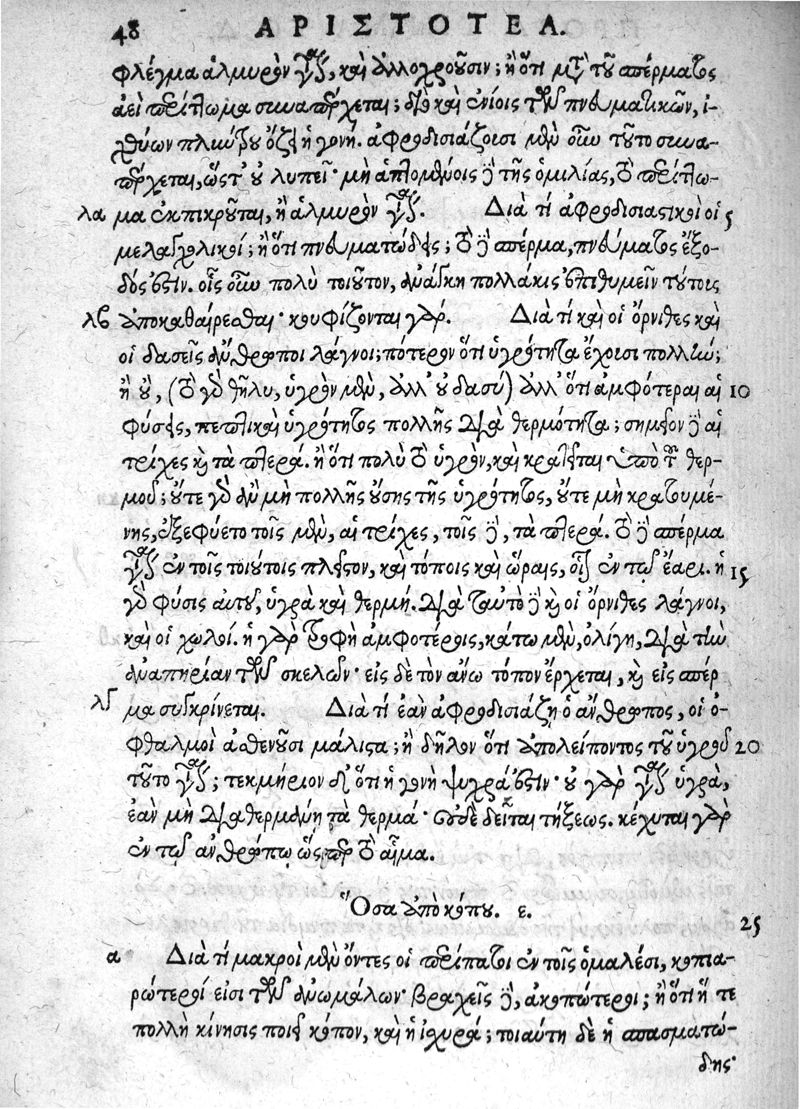 48 ΑΡΙΣΤΟΤΕΛ.
φλέγμα ἁλμυρὸν γίνεται, καὶ ἀλλοχροοῦσιν; ἢ ὅτι μετὰ τοῦ σπέρματος
ἀεὶ περίττωμα συναπέρχεται; διὸ καὶ ἐνίοις τῶν πνευματικῶν, ἰ-
χθύων πλυμένου ὄζει ἡ γονή. ἀφροδισιάζουσι μὲν οὖν τοῦτο συνα-
πέρχεται, ὥστ' οὐ λυπεῖ· μὴ ἁπτομένοις δὲ τῆς ὁμιλίας, τὸ περίττω-
λα μα ἐκπικροῦται, ἢ ἁλμυρὸν γίνεται. Διὰ τί ἀφροδισιαστικοὶ οἱ 5
μελαγχολικοί; ἢ ὅτι πνευματώδεις; τὸ δὲ σπέρμα, πνεύματος ἔξο-
δός ἐστιν. οἷς οὖν πολὺ τοιοῦτον, ἀνάγκη πολλάκις ἐπιθυμεῖν τούτοις
λβ ἀποκαθαίρεσθαι· κουφίζονται γάρ. Διὰ τί καὶ οἱ ὄρνιθες καὶ
οἱ δασεῖς ἄνθρωποι λάγνοι; πότερον ὅτι ὑγρότητα ἔχουσι πολλήν;
ἢ οὔ, (τὸ γὰρ θῆλυ, ὑγρὸν μὲν, ἀλλ' οὐ δασύ) ἀλλ' ὅτι ἀμφότεραι αἱ 10
φύσεις, πεπτικαὶ ὑγρότητος πολλῆς διὰ θερμότητα; σημεῖον δὲ αἱ
τρίχες καὶ τὰ πτερά. ἢ ὅτι πολὺ τὸ ὑγρὸν, καὶ κρατεῖται ὑπὸ τοῦ θερ-
μοῦ; οὔτε γὰρ ἂν μὴ πολλῆς οὔσης τῆς ὑγρότητος, οὔτε μὴ κρατουμέ-
νης, ἐξεφύετο τοῖς μὲν, αἱ τρίχες, τοῖς δὲ, τὰ πτερά. τὸ δὲ σπέρμα
γίνεται ἐν τοῖς τοιούτοις πλεῖστον, καὶ τόποις καὶ ὥραις, οἷον ἐν τῷ ἔαρι. ἡ 15
γὰρ φύσις αὐτοῦ, ὑγρὰ καὶ θερμή. διὰ ταὐτὸ δὲ καὶ οἱ ὄρνιθες λάγνοι,
καὶ οἱ χωλοί. ἡ γὰρ τροφὴ ἀμφοτέροις, κάτω μὲν, ὀλίγη, διὰ τὴν
ἀναπηρίαν τῶν σκελῶν· εἰς δὲ τὸν ἄνω τόπον ἔρχεται, καὶ εἰς σπέρ
λγ μα συγκρίνεται. Διὰ τί ἐὰν ἀφροδισιάζῃ ὁ ἄνθρωπος, οἱ ὀ-
φθαλμοὶ ἀσθενοῦσι μάλιστα; ἢ δῆλον ὅτι ἀπολείποντος τοῦ ὑγροῦ 20
τοῦτο γίνεται; τεκμήριον δὲ ὅτι ἡ γονὴ ψυχρά ἐστιν· οὐ γὰρ γίνεται ὑγρὰ,
ἐὰν μὴ διαθερμάνῃ τὰ θερμά· οὐδὲ δεῖται τήξεως. κέχυται γὰρ
ἐν τῷ ἀνθρώπῳ ὥσπερ τὸ αἷμα.
Ὅσα ἀπὸ κόπου. ε.
25
α Διὰ τί μακροὶ μὲν ὄντες οἱ περίπατοι ἐν τοῖς ὁμαλέσι, κοπια-
ρώτεροί εἰσι τῶν ἀνωμάλων· βραχεῖς δὲ, ἀκοπώτεροι; ἢ ὅτι ἥ τε
πολλὴ κίνησις ποιεῖ κόπον, καὶ ἡ ἰσχυρά; τοιαύτη δὲ ἡ σπασματώ-
δης·